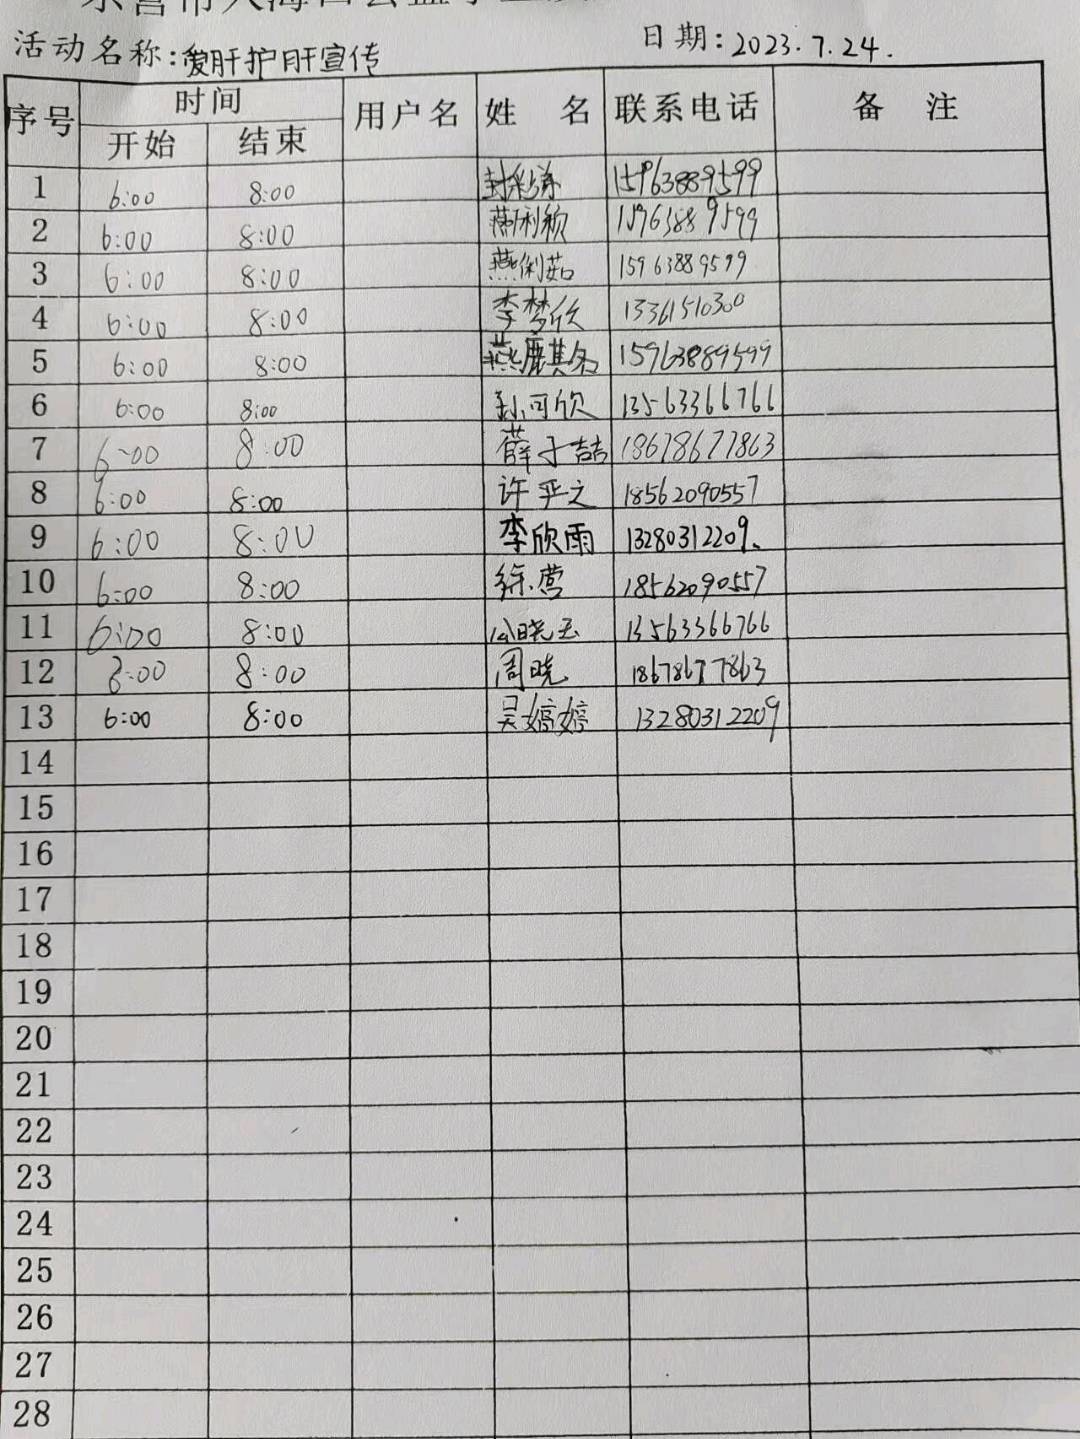 活动名称:爱肝护肝宣传 日期:2023.7.24.
序号 时间 用户名 姓 名 联系电话 备 注
开始 结束
1 6:00 8:00 15963889599
2 6:00 8:00 15963889599
3 6:00 8:00 燕俐茹 15963889599
4 6:00 8:00 李梦欣 13361510300
5 6:00 8:00 15963889599
6 6:00 8:00 孙可欣 13563366766
7 6:00 8:00 薛子喆 18678677863
8 6:00 8:00 许平之 18562090557
9 6:00 8:00 李欣雨 13280312209
10 6:00 8:00 徐营 18562090557
11 6:00 8:00 公晓玉 13563366766
12 8:00 周晓 18678677863
13 6:00 8:00 吴婷婷 13280312209
14
15
16
17
18
19
20
21
22
23
24
25
26
27
28